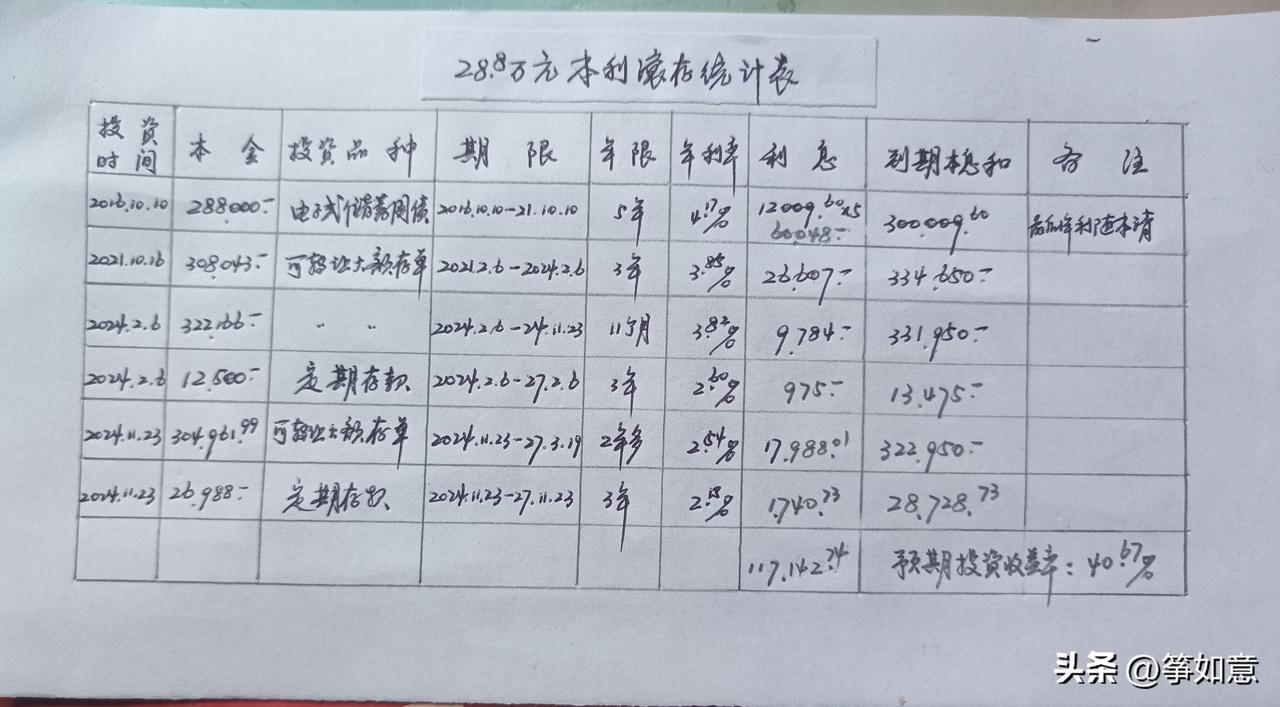 28.8万元本利滚存统计表
投资时间 本金 投资品种 期限 年限 年利率 利息 到期本息和 备注
2016.10.10 288000.- 电子式储蓄国债 2016.10.10-21.10.10 5年 4.17% 12009.60x5 60048.- 300.009.60 最后年利随本清
2021.10.16 308043.- 可转让大额存单 2021.2.6-2024.2.6 3年 3.85% 26.607.- 334.650.-
2024.2.6 322.166.- " " 2024.2.6-24.11.23 11个月 3.82% 9.784.- 331.950.-
2024.2.6 12.500.- 定期存款 2024.2.6-27.2.6 3年 2.60% 975.- 13.475.-
2024.11.23 304.961.99 可转让大额存单 2024.11.23-27.3.19 2年多 2.54% 17.988.01 322.950.-
2024.11.23 26.988.- 定期存款 2024.11.23-27.11.23 3年 2.15% 1.740.73 28.728.73
117.142.74 预期投资收益率：40.67%
头条 @筝如意